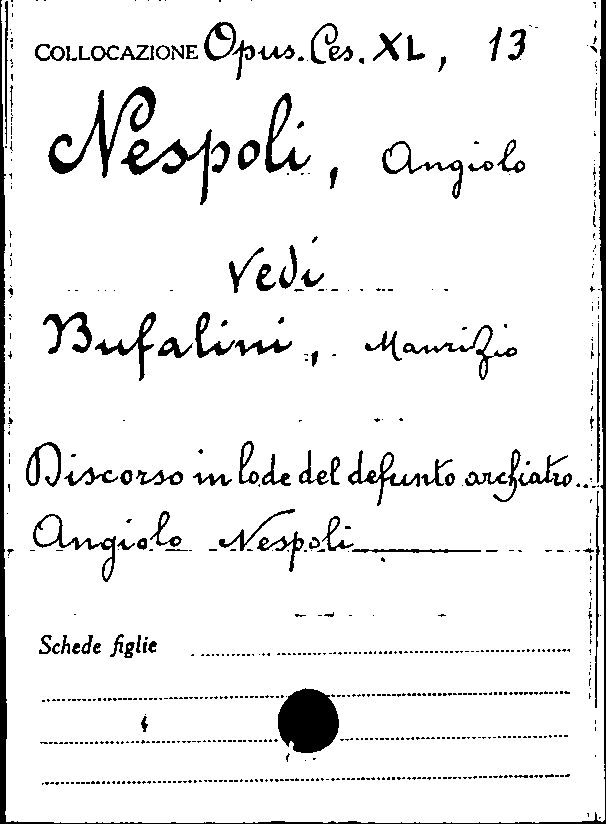 COLLOCAZIONE Opus. Ces. XL, 13
Nespoli, Angiolo
Vedi
Bufalini, Maurizio
Discorso in lode del defunto archiatro..
Angiolo Nespoli
Schede figlie